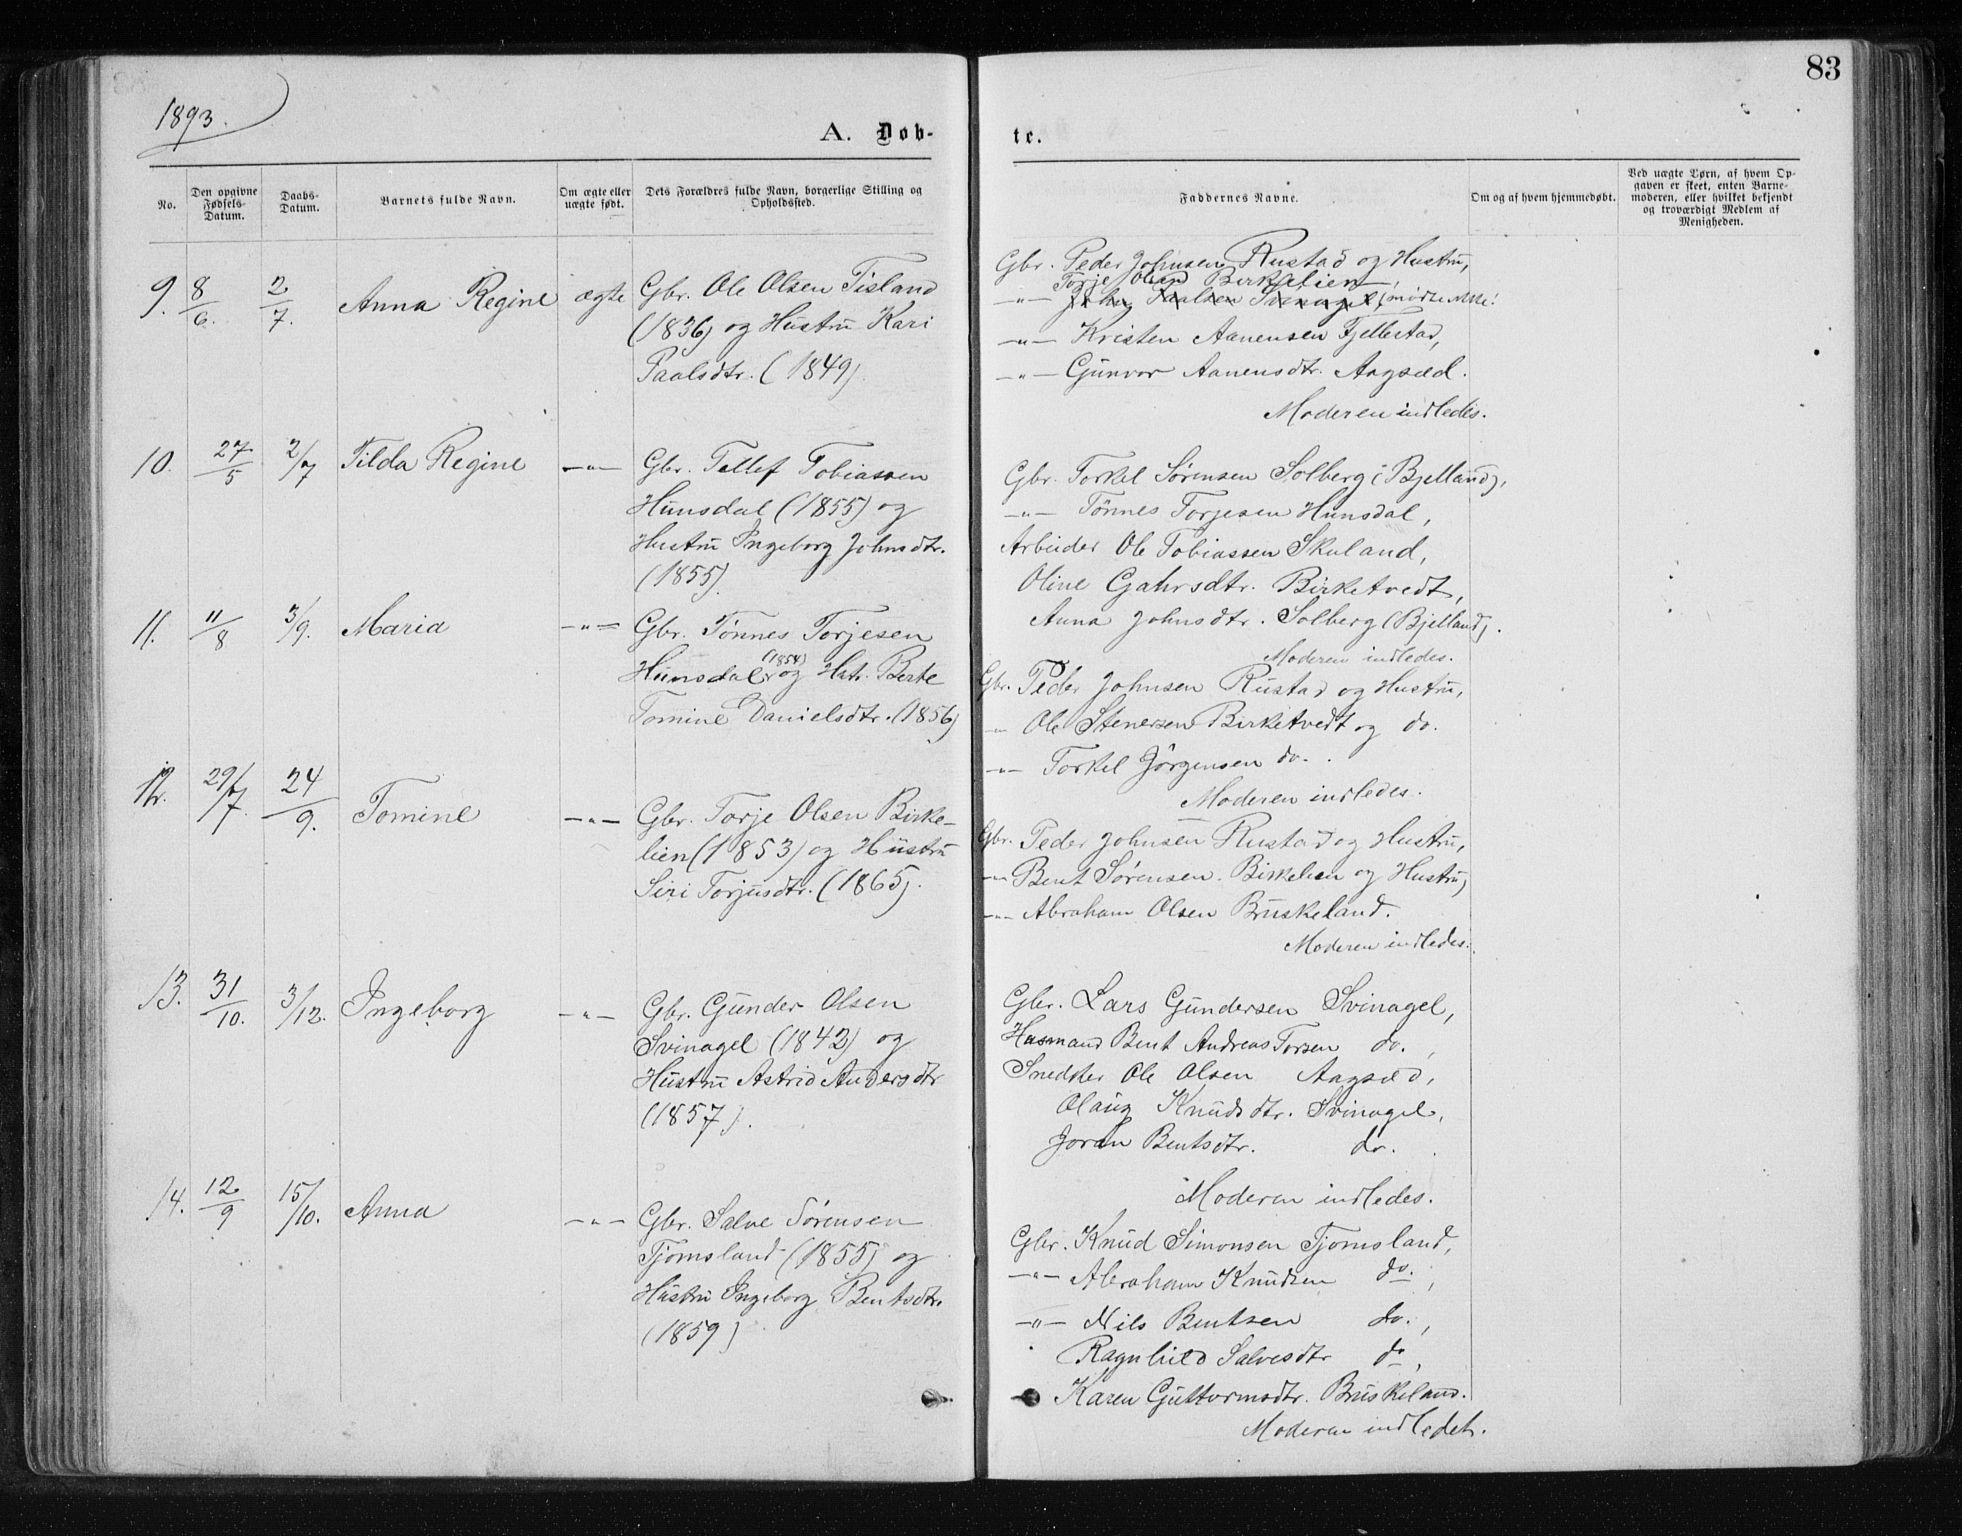 83
1893.
A. Døb-
te.
No.
Den opgivne Fødsels-Datum.
Daabs-Datum.
Barnets fulde Navn.
Om ægte eller uægte født.
Dets Forældres fulde Navn, borgerlige Stilling og Opholdssted.
Faddernes Navne.
Om og af hvem hjemmedøbt.
Ved uægte Børn, af hvem Opgaven er skeet, enten Barnemoderen, eller hvilket bekjendt og troværdigt Medlem af Menigheden.
9. 8/6. 2/7. Anna Regine ægte Gbr. Ole Olsen Tisland
(1836) og Hustru Kari
Paalsdtr. (1849).
Gbr. Peder Johnsen Rustad og Hustru,
Torje Olsen Birkelien,
-"- John Paalsen Svinagel (mødte ikke!
-"- Kristen Aanensen Fjellestad,
-"- Gunvor Aanensdtr. Aagsæd.
Moderen indledes.
10. 27/5 2/7 Tilda Regine -"- Gbr. Tellef Tobiassen
Hunsdal (1855) og
Hustru Ingeborg Johnsdtr.
(1855).
Gbr. Torkel Sørensen Solberg i Bjelland,
-"- Tönnes Torjesen Hunsdal,
Arbeider Ole Tobiassen Skuland,
Oline Gahrsdtr. Birketvedt,
Anna Johnsdtr. Solberg (Bjelland).
Moderen indledes.
11. 11/8 3/9. Maria -"- Gbr. Tönnes Torjesen
Hunsdal (1854) og Hstr. Berte
Tomine Danielsdtr. (1856)
Gbr. Peder Johnsen Rustad og Hustru,
-"- Ole Stenersen Birketvedt og do.
-"- Torkel Jörgensen do.
Moderen indledes.
12. 29/7. 24/9. Tomine -"- Gbr. Torje Olsen Birke-
lien (1853) og Hustru
Siri Torjusdtr. (1865).
Gbr. Peder Johnsen Rustad og Hustru,
-"- Bent Sørensen Birkelien og Hustru,
-"- Abraham Olsen Bruskeland.
Moderen indledes.
13. 31/10. 3/12. Ingeborg -"- Gbr. Gunder Olsen
Svinagel (1842) og
Hustru Astrid Andersdtr
(1857).
Gbr. Lars Gundersen Svinagel,
Husmand Bent Andreas Torsen do.,
Snedker Ole Olsen Aagsæd,
Olaug Knudsdtr. Svinagel,
Joran Bentsdtr. do.
Moderen indledes.
14. 12/9 15/10. Anna -"- Gbr. Salve Sörensen
Tjomsland (1855) og
Hustru Ingeborg Bentsdtr.
(1859)
Gbr. Knud Simonsen Tjomsland,
-"- Abraham Knudsen do.,
-"- Nils Bentsen do.,
Ragnhild Salvesdtr do,
Karen Guttormsdtr. Bruskeland.
Moderen indledet.